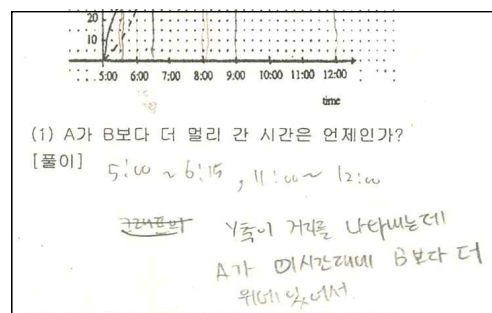 20
10
5:00 6:00 7:00 8:00 9:00 10:00 11:00 12:00
time
(1) A가 B보다 더 멀리 간 시간은 언제인가?
[풀이] 5:00 ~ 6:15, 11:00 ~ 12:00
Y축이 거리를 나타내는데
A가 이시간대에 B보다 더
위에 있어서